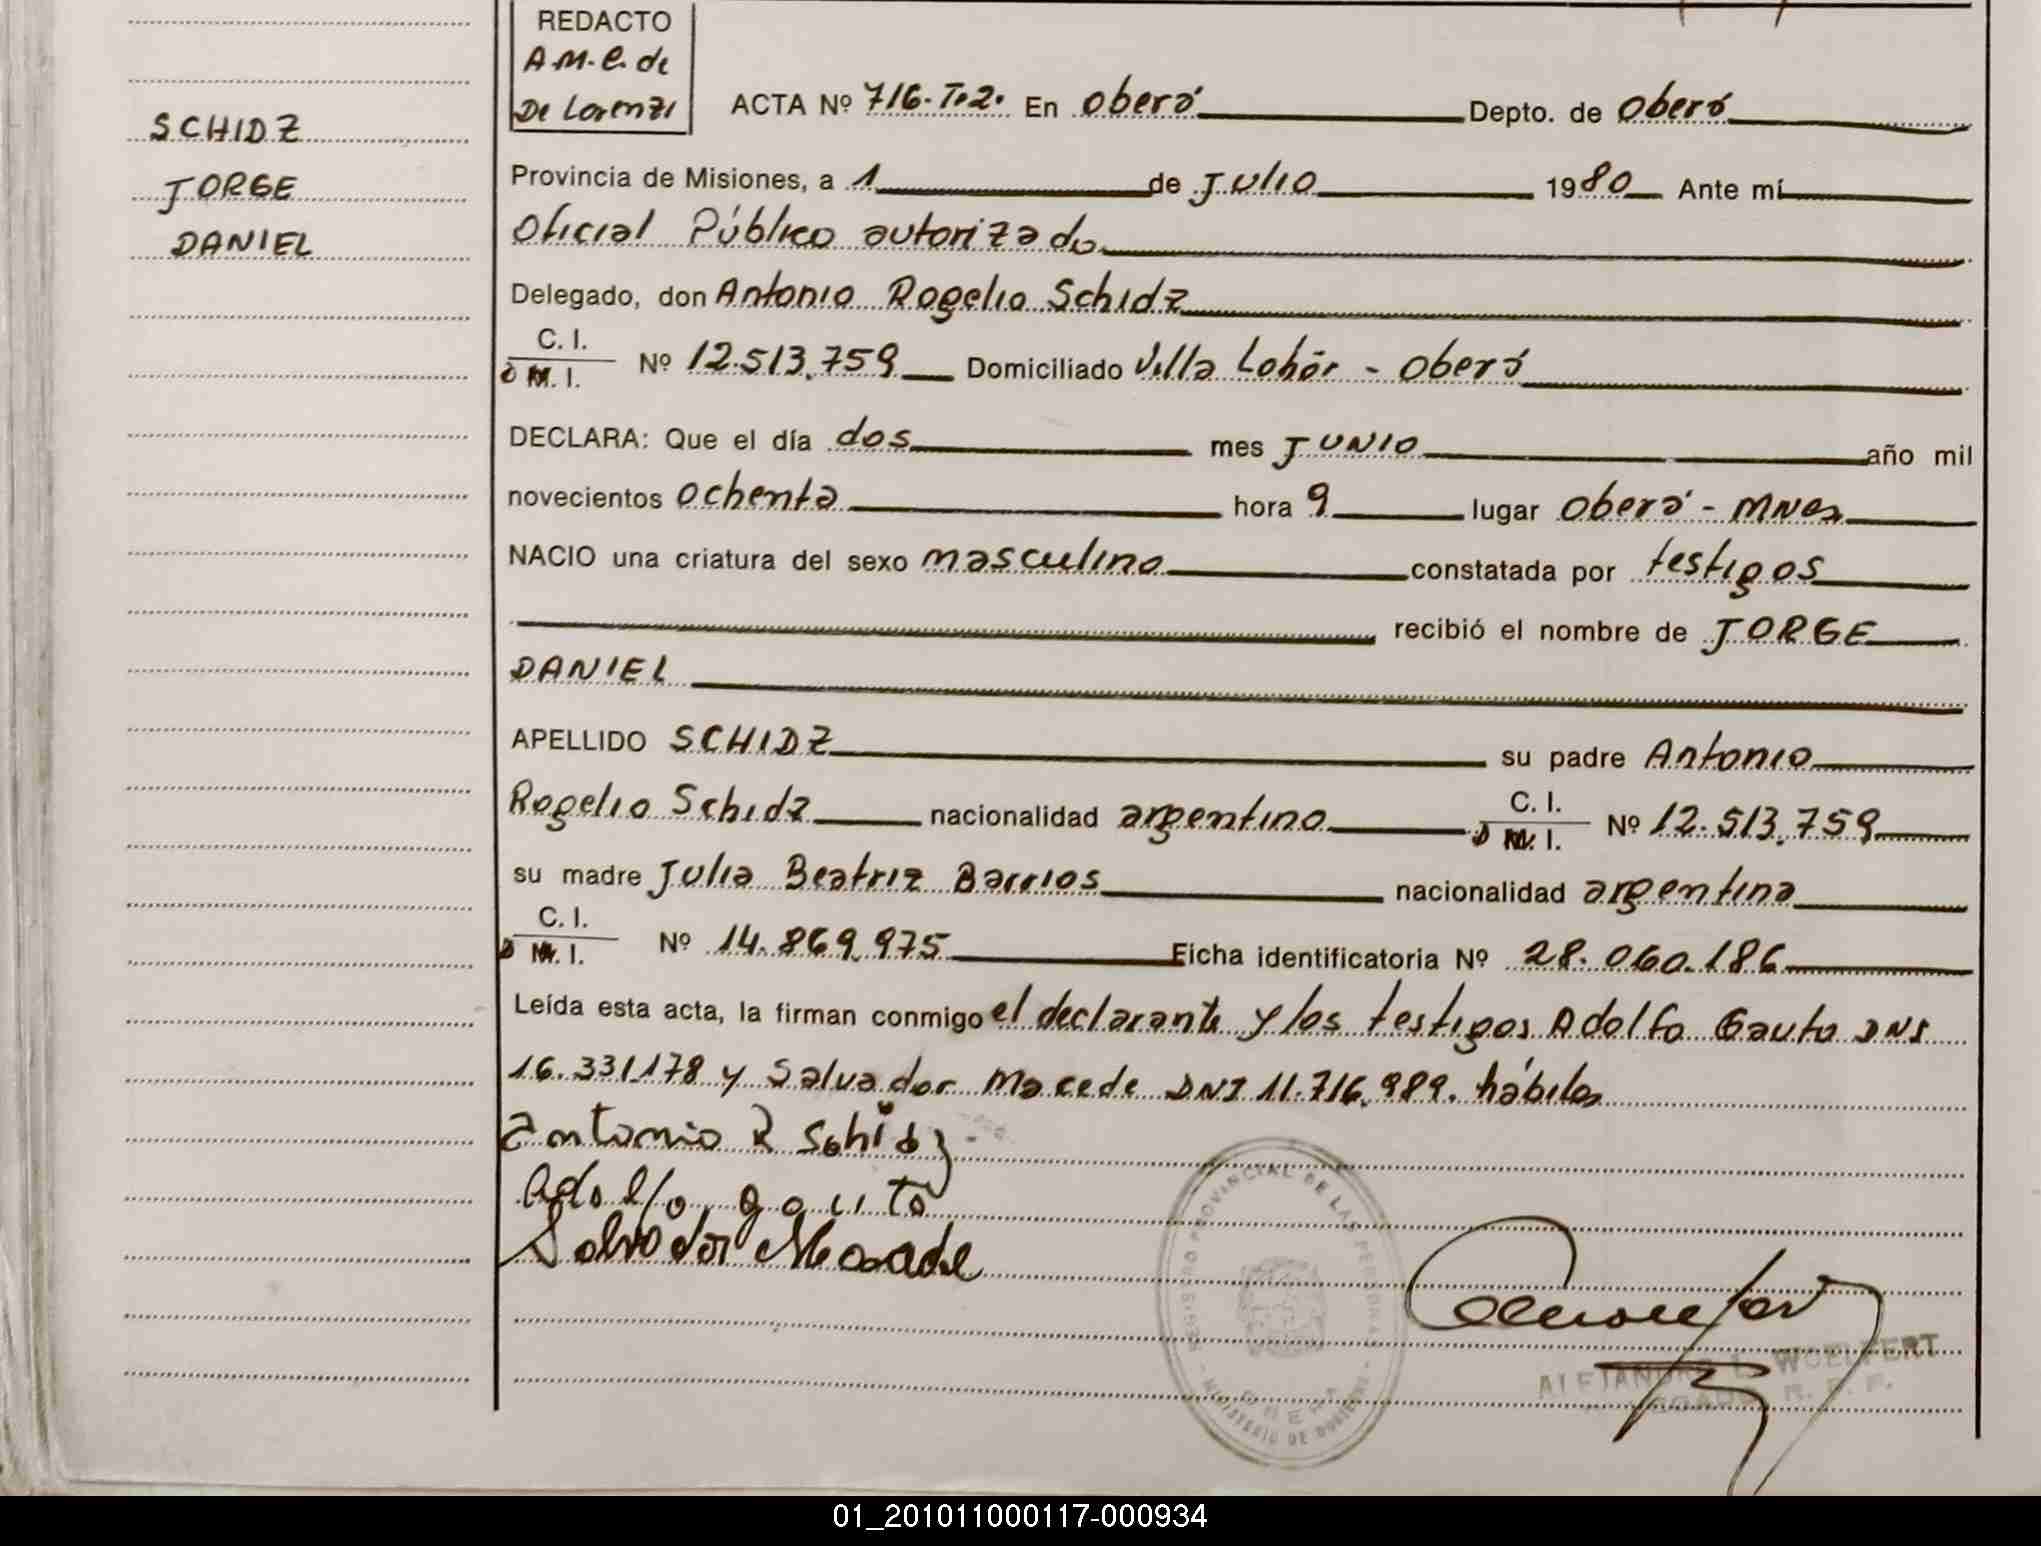 REDACTO
A.M.C. de
De Lorenzi
SCHIDZ
JORGE
DANIEL
ACTA Nº 716. T.2. En Oberá Depto. de Oberá
Provincia de Misiones, a 1 de Julio 1980 Ante mí
Oficial Público autorizado
Delegado, don Antonio Rogelio Schidz
C. I.
D M. I. Nº 12.513.759 Domiciliado Villa Lohör - Oberá
DECLARA: Que el día dos mes JUNIO año mil
novecientos ochenta hora 9 lugar Oberá - Mnes
NACIO una criatura del sexo masculino constatada por testigos
recibió el nombre de JORGE
DANIEL
APELLIDO SCHIDZ su padre Antonio
Rogelio Schidz nacionalidad argentino C. I. D M. I. Nº 12.513.759
su madre Julia Beatriz Barrios nacionalidad argentina
C. I.
D M. I. Nº 14.869.975 Ficha identificatoria Nº 28.060.186
Leída esta acta, la firman conmigo el declarante y los testigos Adolfo Gauto DNI
16.331.178 y Salvador Macede DNI 11.716.989. hábiles
Antonio R Schidz
Adolfo gauto
Salvador
REGISTRO PROVINCIAL DE LAS PERSONAS
MINISTERIO DE GOBIERNO
ALEJANDRO L. WOELFERT
01_201011000117-000934